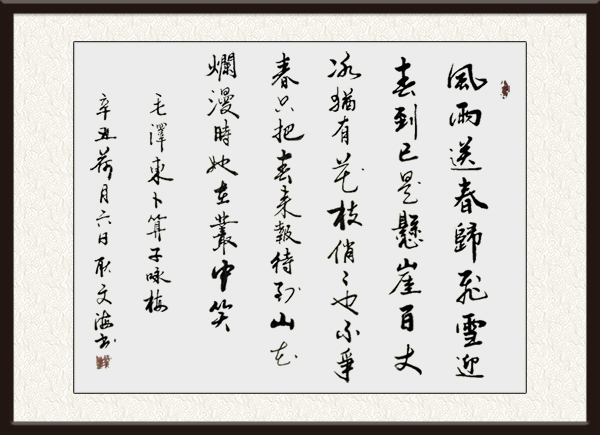 風雨送春歸飛雪迎
春到已是懸崖百丈
冰猶有花枝俏〻也不爭
春只把春来報待到山花
爛漫時她在叢中笑
毛澤東卜算子咏梅
辛丑荷月六日耿文海书